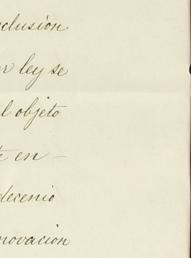 clusión
ley se
l objeto
en —
decenio
novacion